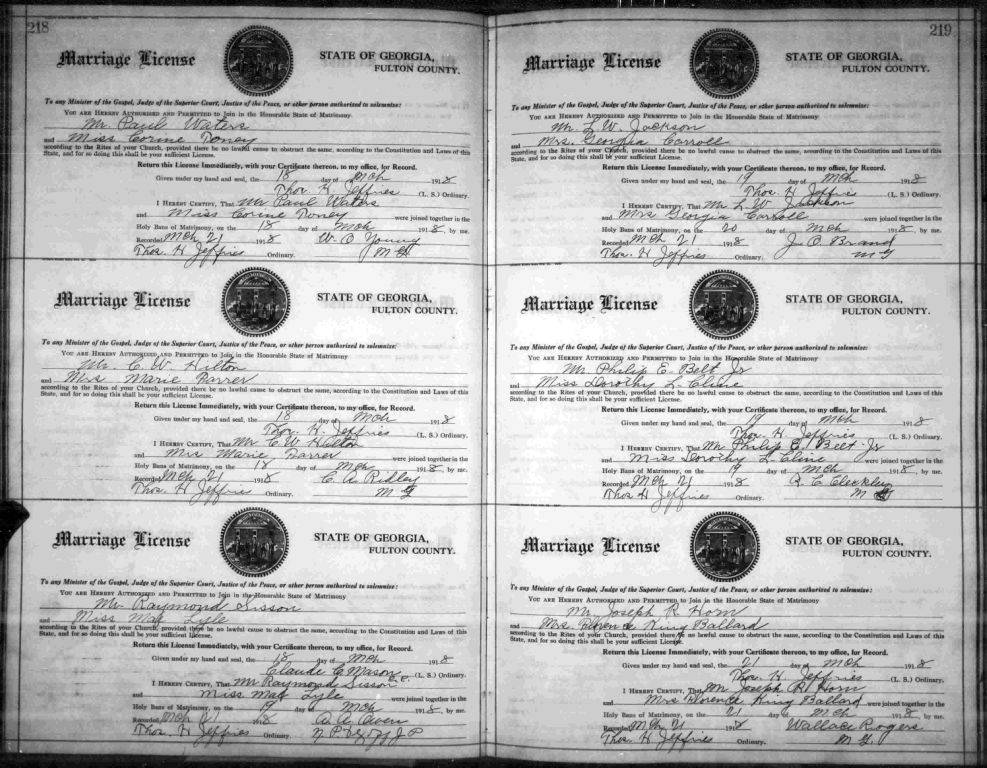 218
Marriage License
STATE OF GEORGIA,
FULTON COUNTY.
To any Minister of the Gospel, Judge of the Superior Court, Justice of the Peace, or other person authorized to solemnize:
YOU ARE HEREBY AUTHORIZED AND PERMITTED to Join in the Honorable State of Matrimony
Mr. Paul Waters
and Miss Corine Toney
according to the Rites of your Church, provided there be no lawful cause to obstruct the same, according to the Constitution and Laws of this
State, and for so doing this shall be your sufficient License.
Return this License Immediately, with your Certificate thereon, to my office, for Record.
Given under my hand and seal, the 18 day of Mch 1918
Thos. H. Jeffries (L. S.) Ordinary.
I HEREBY CERTIFY, That Mr Paul Waters
and Miss Corine Toney were joined together in the
Holy Bans of Matrimony, on the 18 day of Mch 1918, by me.
Recorded Mch 21 1918 W. O Young
Thos. H Jeffries Ordinary.
Marriage License
STATE OF GEORGIA,
FULTON COUNTY.
To any Minister of the Gospel, Judge of the Superior Court, Justice of the Peace, or other person authorized to solemnize:
YOU ARE HEREBY AUTHORIZED AND PERMITTED to Join in the Honorable State of Matrimony
Mr. C. W. Hilton
and Mrs Marie Farrer
according to the Rites of your Church, provided there be no lawful cause to obstruct the same, according to the Constitution and Laws of this
State, and for so doing this shall be your sufficient License.
Return this License Immediately, with your Certificate thereon, to my office, for Record.
Given under my hand and seal, the 18 day of Mch 1918
Thos. H. Jeffries (L. S.) Ordinary.
I HEREBY CERTIFY, That Mr C. W. Hilton
and Mrs Marie Farrer were joined together in the
Holy Bans of Matrimony, on the 18 day of Mch 1918, by me.
Recorded Mch 21 1918 C. A. Ridley
Thos. H Jeffries Ordinary. M G
Marriage License
STATE OF GEORGIA,
FULTON COUNTY.
To any Minister of the Gospel, Judge of the Superior Court, Justice of the Peace, or other person authorized to solemnize:
YOU ARE HEREBY AUTHORIZED AND PERMITTED to Join in the Honorable State of Matrimony
Mr Raymond Sisson
and Miss Mae Lyle
according to the Rites of your Church, provided there be no lawful cause to obstruct the same, according to the Constitution and Laws of this
State, and for so doing this shall be your sufficient License.
Return this License Immediately, with your Certificate thereon, to my office, for Record.
Given under my hand and seal, the 18 day of Mch 1918
Claude C Mason (L. S.) Ordinary.
I HEREBY CERTIFY, That Mr Raymond Sisson
and Miss Mae Lyle were joined together in the
Holy Bans of Matrimony, on the 19 day of Mch 1918, by me.
Recorded Mch 21 1918 Owen
Thos. H Jeffries Ordinary. J P
219
Marriage License
STATE OF GEORGIA,
FULTON COUNTY.
To any Minister of the Gospel, Judge of the Superior Court, Justice of the Peace, or other person authorized to solemnize:
YOU ARE HEREBY AUTHORIZED AND PERMITTED to Join in the Honorable State of Matrimony
Mr L. W. Jackson
and Mrs. Georgia Carroll
according to the Rites of your Church, provided there be no lawful cause to obstruct the same, according to the Constitution and Laws of this
State, and for so doing this shall be your sufficient License.
Return this License Immediately, with your Certificate thereon, to my office, for Record.
Given under my hand and seal, the 19 day of Mch 1918
Thos. H Jeffries (L. S.) Ordinary.
I HEREBY CERTIFY, That Mr L. W Jackson
and Mrs Georgia Carroll were joined together in the
Holy Bans of Matrimony, on the 20 day of Mch 1918, by me.
Recorded Mch 21 1918 J. O. Brand
Thos. H Jeffries Ordinary. M G
Marriage License
STATE OF GEORGIA,
FULTON COUNTY.
To any Minister of the Gospel, Judge of the Superior Court, Justice of the Peace, or other person authorized to solemnize:
YOU ARE HEREBY AUTHORIZED AND PERMITTED to Join in the Honorable State of Matrimony
Mr. Philip E. Belt Jr
and Miss Dorothy L. Cline
according to the Rites of your Church, provided there be no lawful cause to obstruct the same, according to the Constitution and Laws of this
State, and for so doing this shall be your sufficient License.
Return this License Immediately, with your Certificate thereon, to my office, for Record.
Given under my hand and seal, the 19 day of Mch 1918
Thos. H Jeffries (L. S.) Ordinary.
I HEREBY CERTIFY, That Mr Philip E. Belt Jr
and Miss Dorothy L. Cline were joined together in the
Holy Bans of Matrimony, on the 19 day of Mch 1918, by me.
Recorded Mch 21 1918 R. C Cleckley
Thos H Jeffries Ordinary. M G
Marriage License
STATE OF GEORGIA,
FULTON COUNTY.
To any Minister of the Gospel, Judge of the Superior Court, Justice of the Peace, or other person authorized to solemnize:
YOU ARE HEREBY AUTHORIZED AND PERMITTED to Join in the Honorable State of Matrimony
Mr. Joseph R Horn
and Mrs. Florence King Ballard
according to the Rites of your Church, provided there be no lawful cause to obstruct the same, according to the Constitution and Laws of this
State, and for so doing this shall be your sufficient License.
Return this License Immediately, with your Certificate thereon, to my office, for Record.
Given under my hand and seal, the 21 day of Mch 1918
Thos. H. Jeffries (L. S.) Ordinary.
I HEREBY CERTIFY, That Mr Joseph R Horn
and Mrs Florence King Ballard were joined together in the
Holy Bans of Matrimony, on the 21 day of Mch 1918, by me.
Recorded Mch 21 1918 Wallace Rogers
Thos. H Jeffries Ordinary. M G